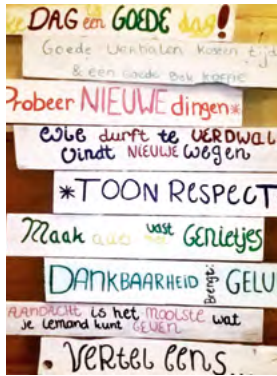 DAG een GOEDE dag!
Goede verhalen kosen tijd
& een Goede Bak koffie
Probeer NIEUWE dingen*
Wie durft te VERDWAL
Vindt NIEUWE wegen
*TOON RESPECT
Maak vast GENIETJES
DANKBAARHEID Brengt: GELU
AANDACHT is het MOOISTE wat
je iemand kunt GEVEN
*VERTEL EENS...